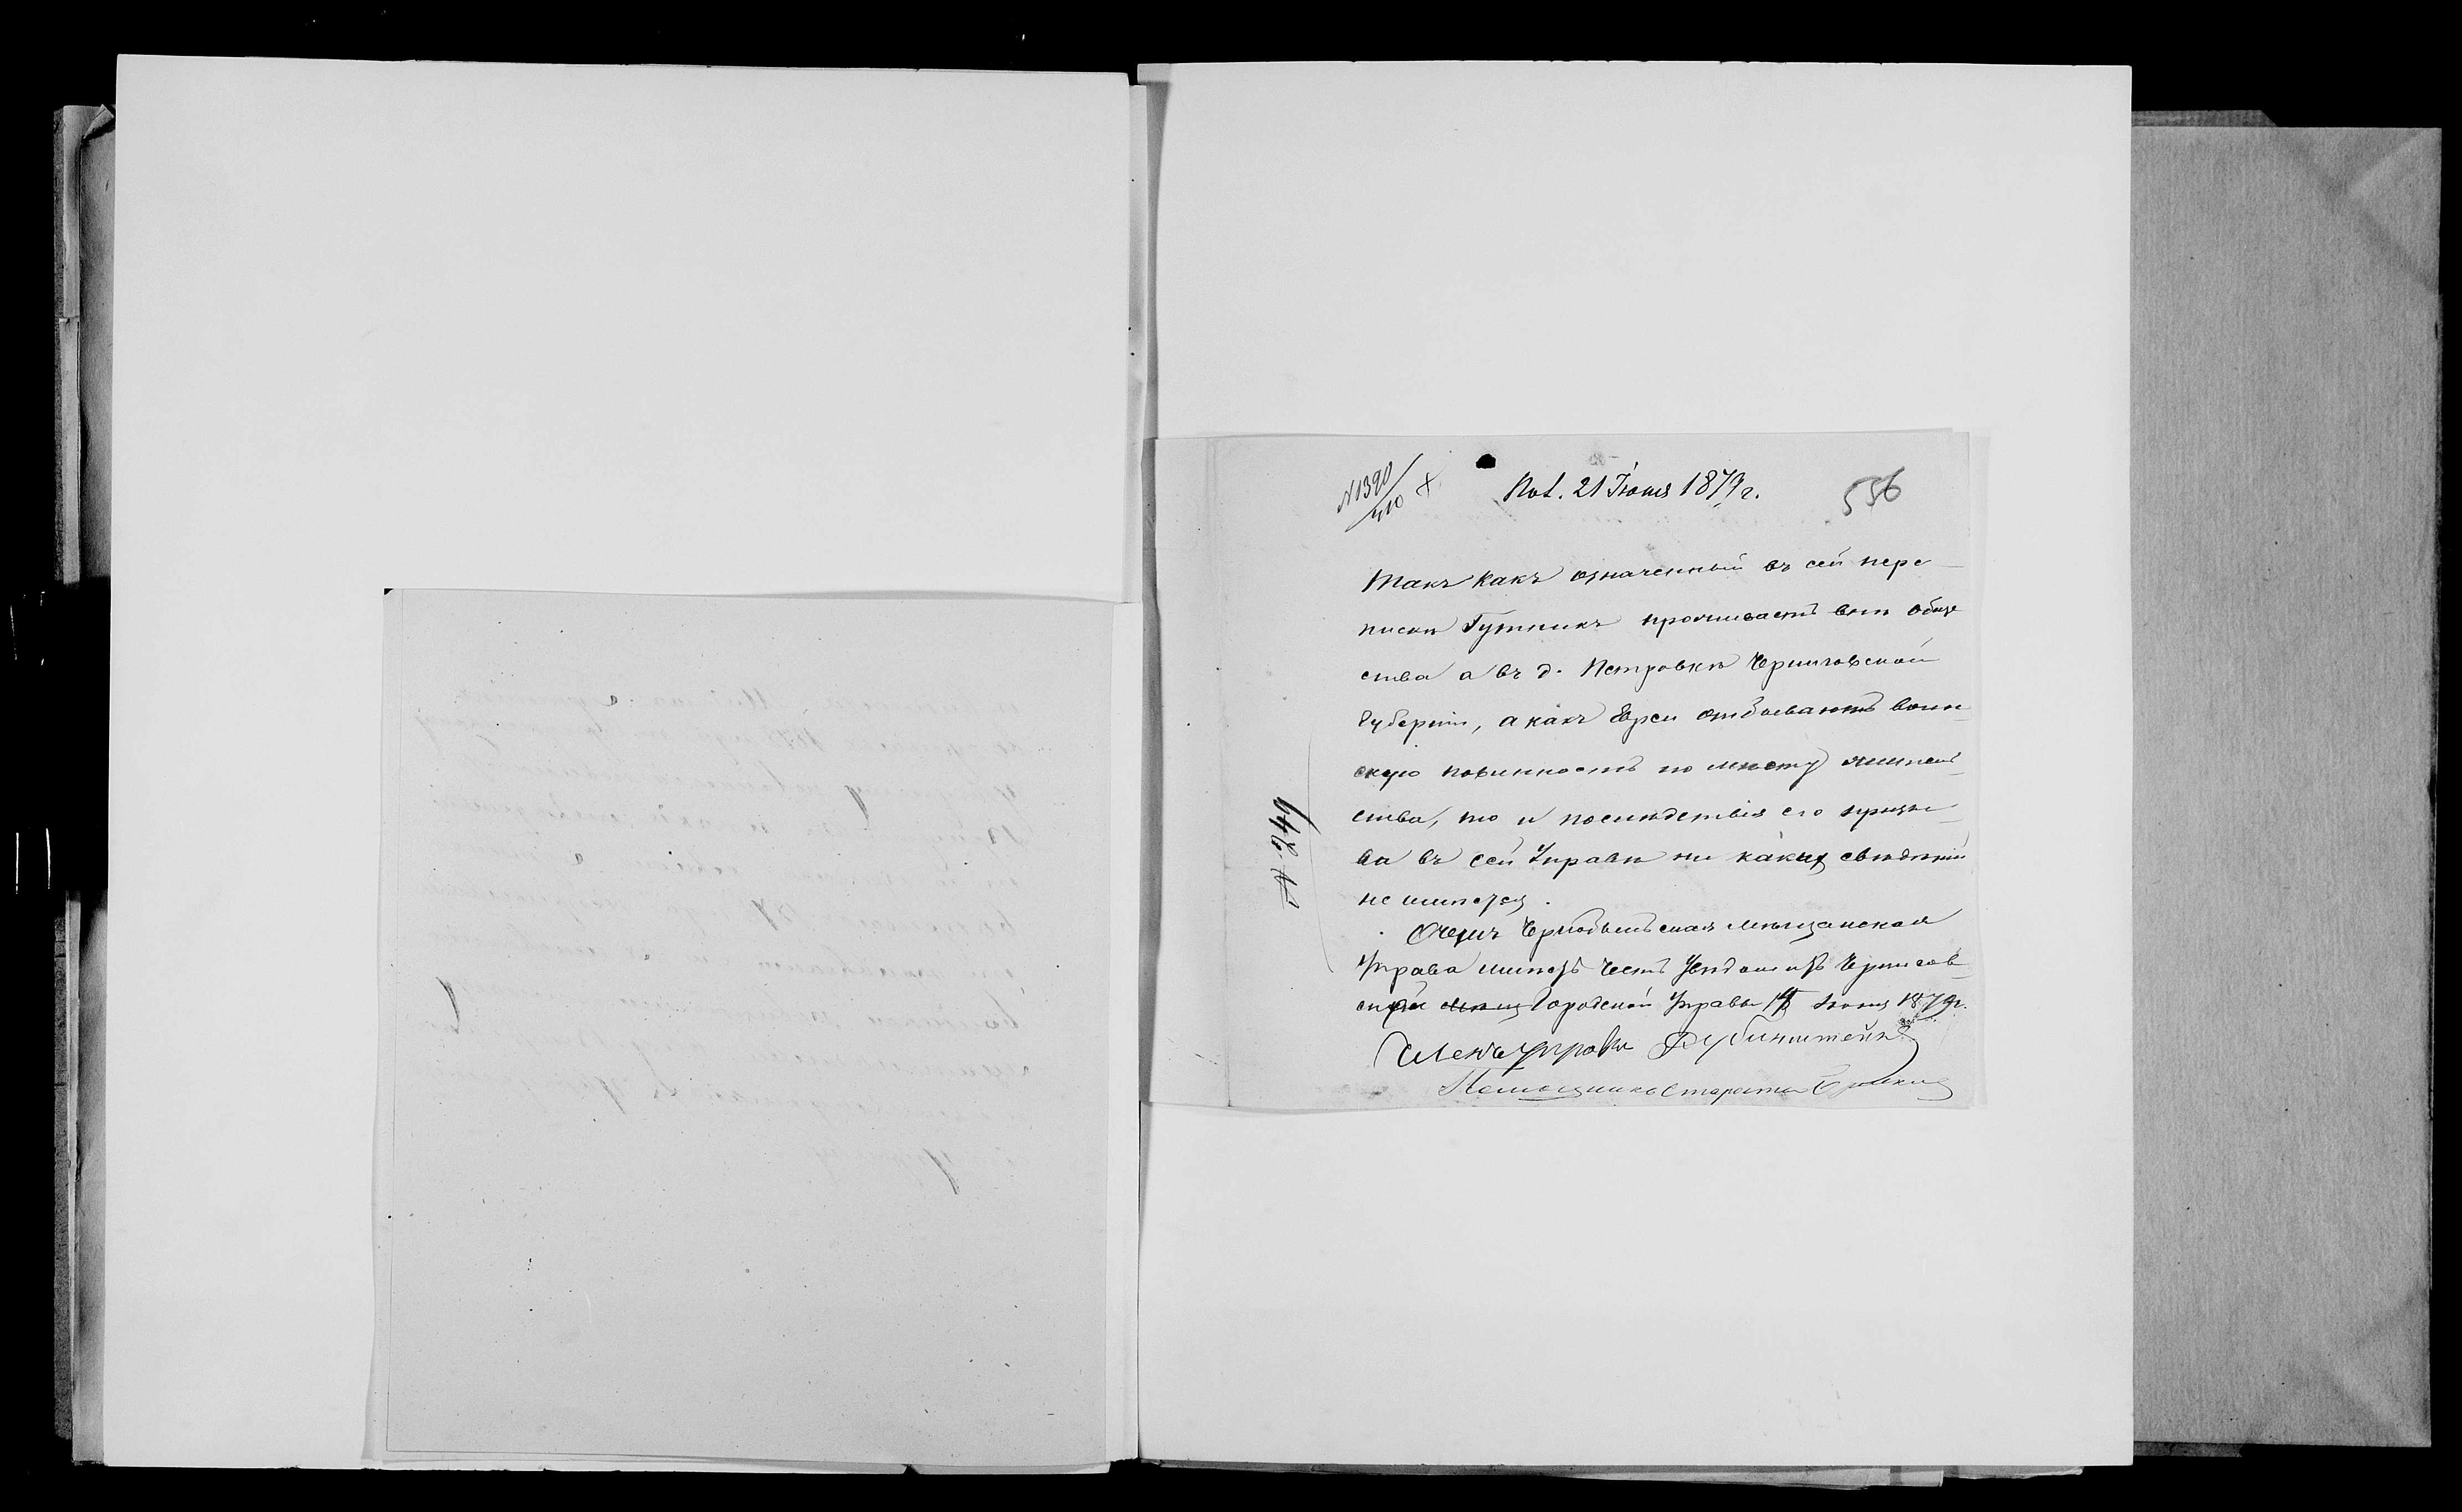 №1390/410
Пол. 21 Іюня 1879 г.
556
Такъ какъ означенный въ сей пере-
пискѣ Гутникъ проживаетъ внѣ обще
ства а въ д. Петровкѣ Черниговской
Губерніи, а какъ Евреи отбываютъ воин-
скую повинность по мѣсту житель-
ства, то и послѣдствія его призы-
ва въ сей Управѣ ни какихъ свѣдѣній
не имѣется.
О чемъ Чернобыльская Мѣщанская
Управа имѣетъ честь увѣдомить Чернигов-
Городской Управы Іюня 1879 г.
Членъ Управы Рубинштейнъ
Помощникъ Старосты
№ 949